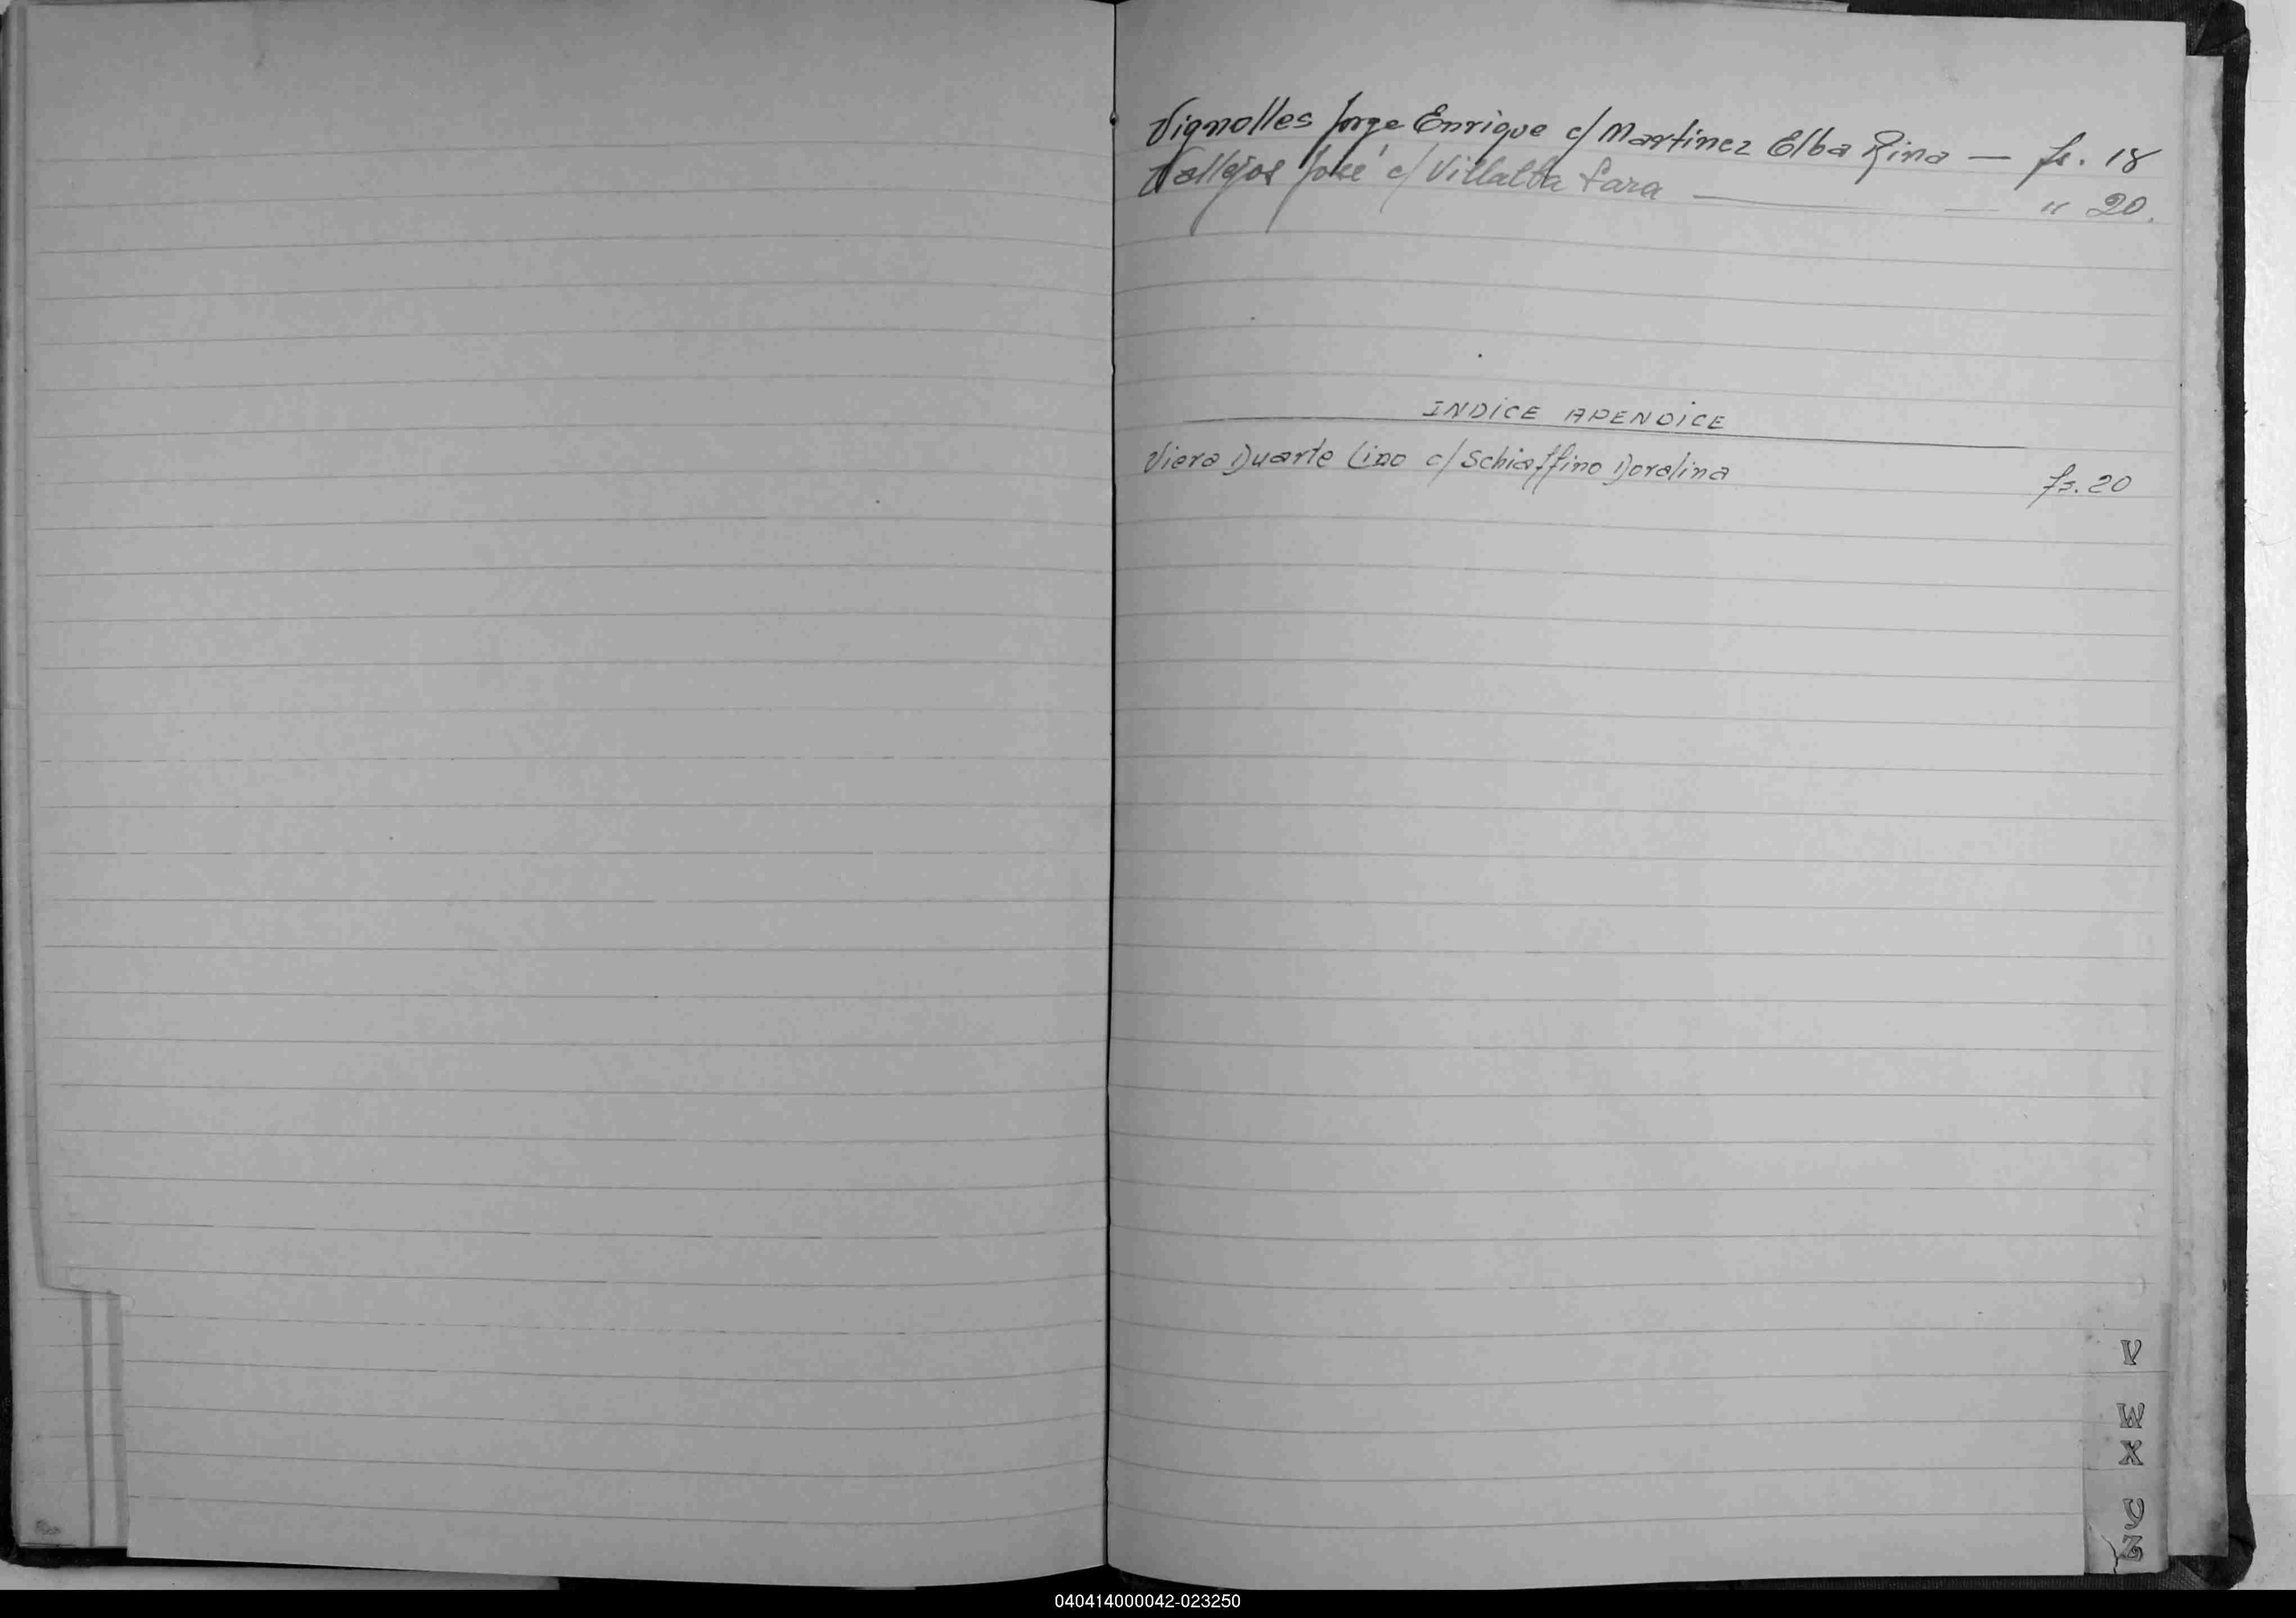 Vignolles Jorge Enrique c/ Martinez Elba Rina — fs. 18
Vallejos José c/ Villalba Sara — " 20.
INDICE APENDICE
Viera Duarte Lino c/ Schiaffino Doralina fs. 20
V
W
X
Y
Z
040414000042-023250